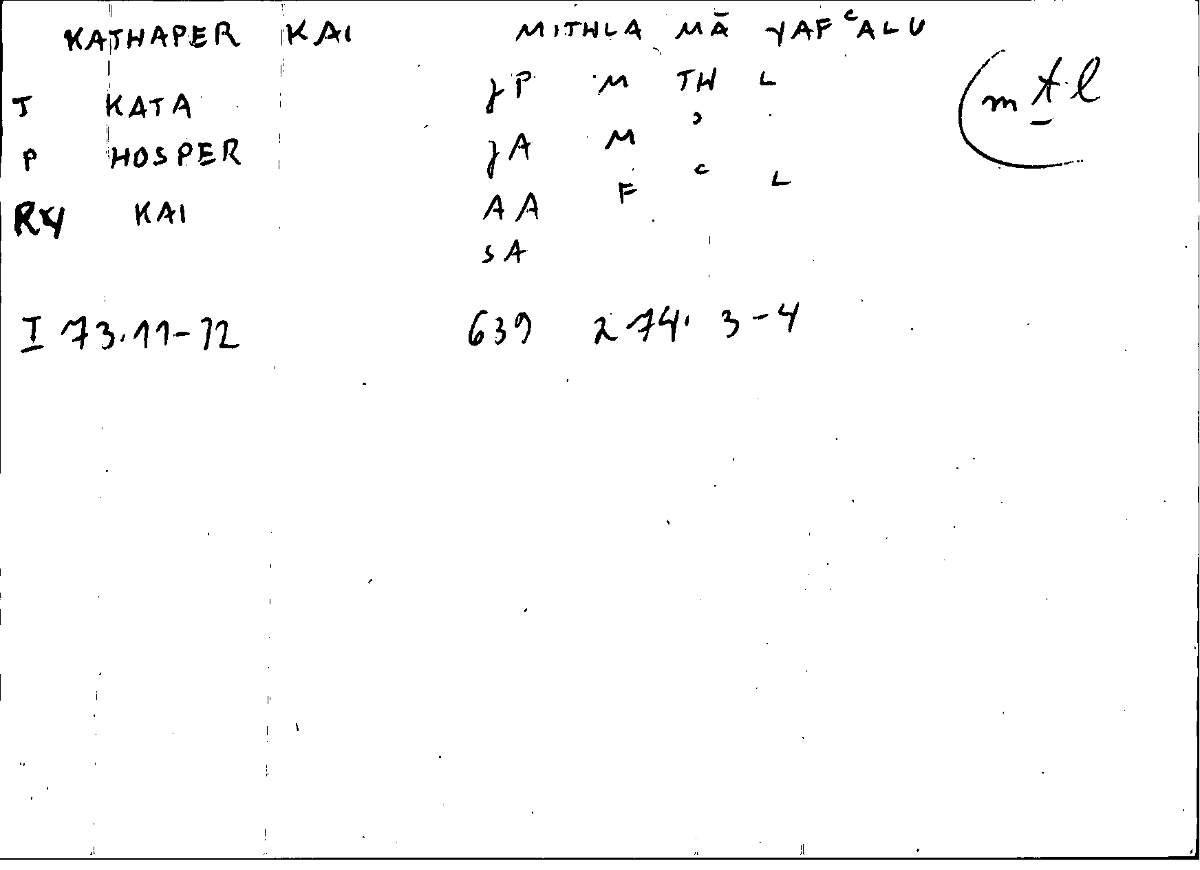 KATHAPER KAI MITHLA MĀ YAFʿALU
T KATA JP M TH L
P HOSPER JA M ʾ
R4 KAI AA F ʿ L
SA
I 73.11-12 639 2 74. 3-4
mṯl